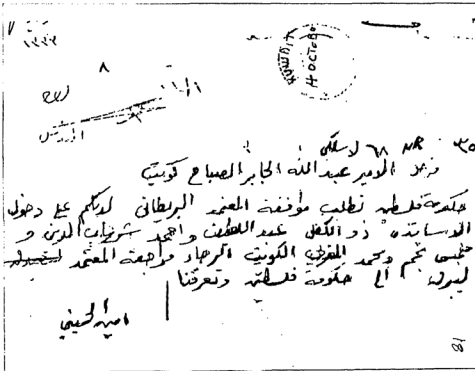 KUWAIT
14 OCTOBER
٨
٣٥ NR ٦٨ لاسلكي
الامير عبد الله الجابر الصباح كويت
حكومة فلسطين تطلب موافقة المعتمد البريطاني لديكم على دخول
الاساتذه ذو الكفل عبد اللطيف واحمد شهاب الدين و
خميس نجم ومحمد المغربي الكويت الرجاء مراجعة المعتمد
ليبرق الى حكومة فلسطين وتعرفنا
امين الحسيني